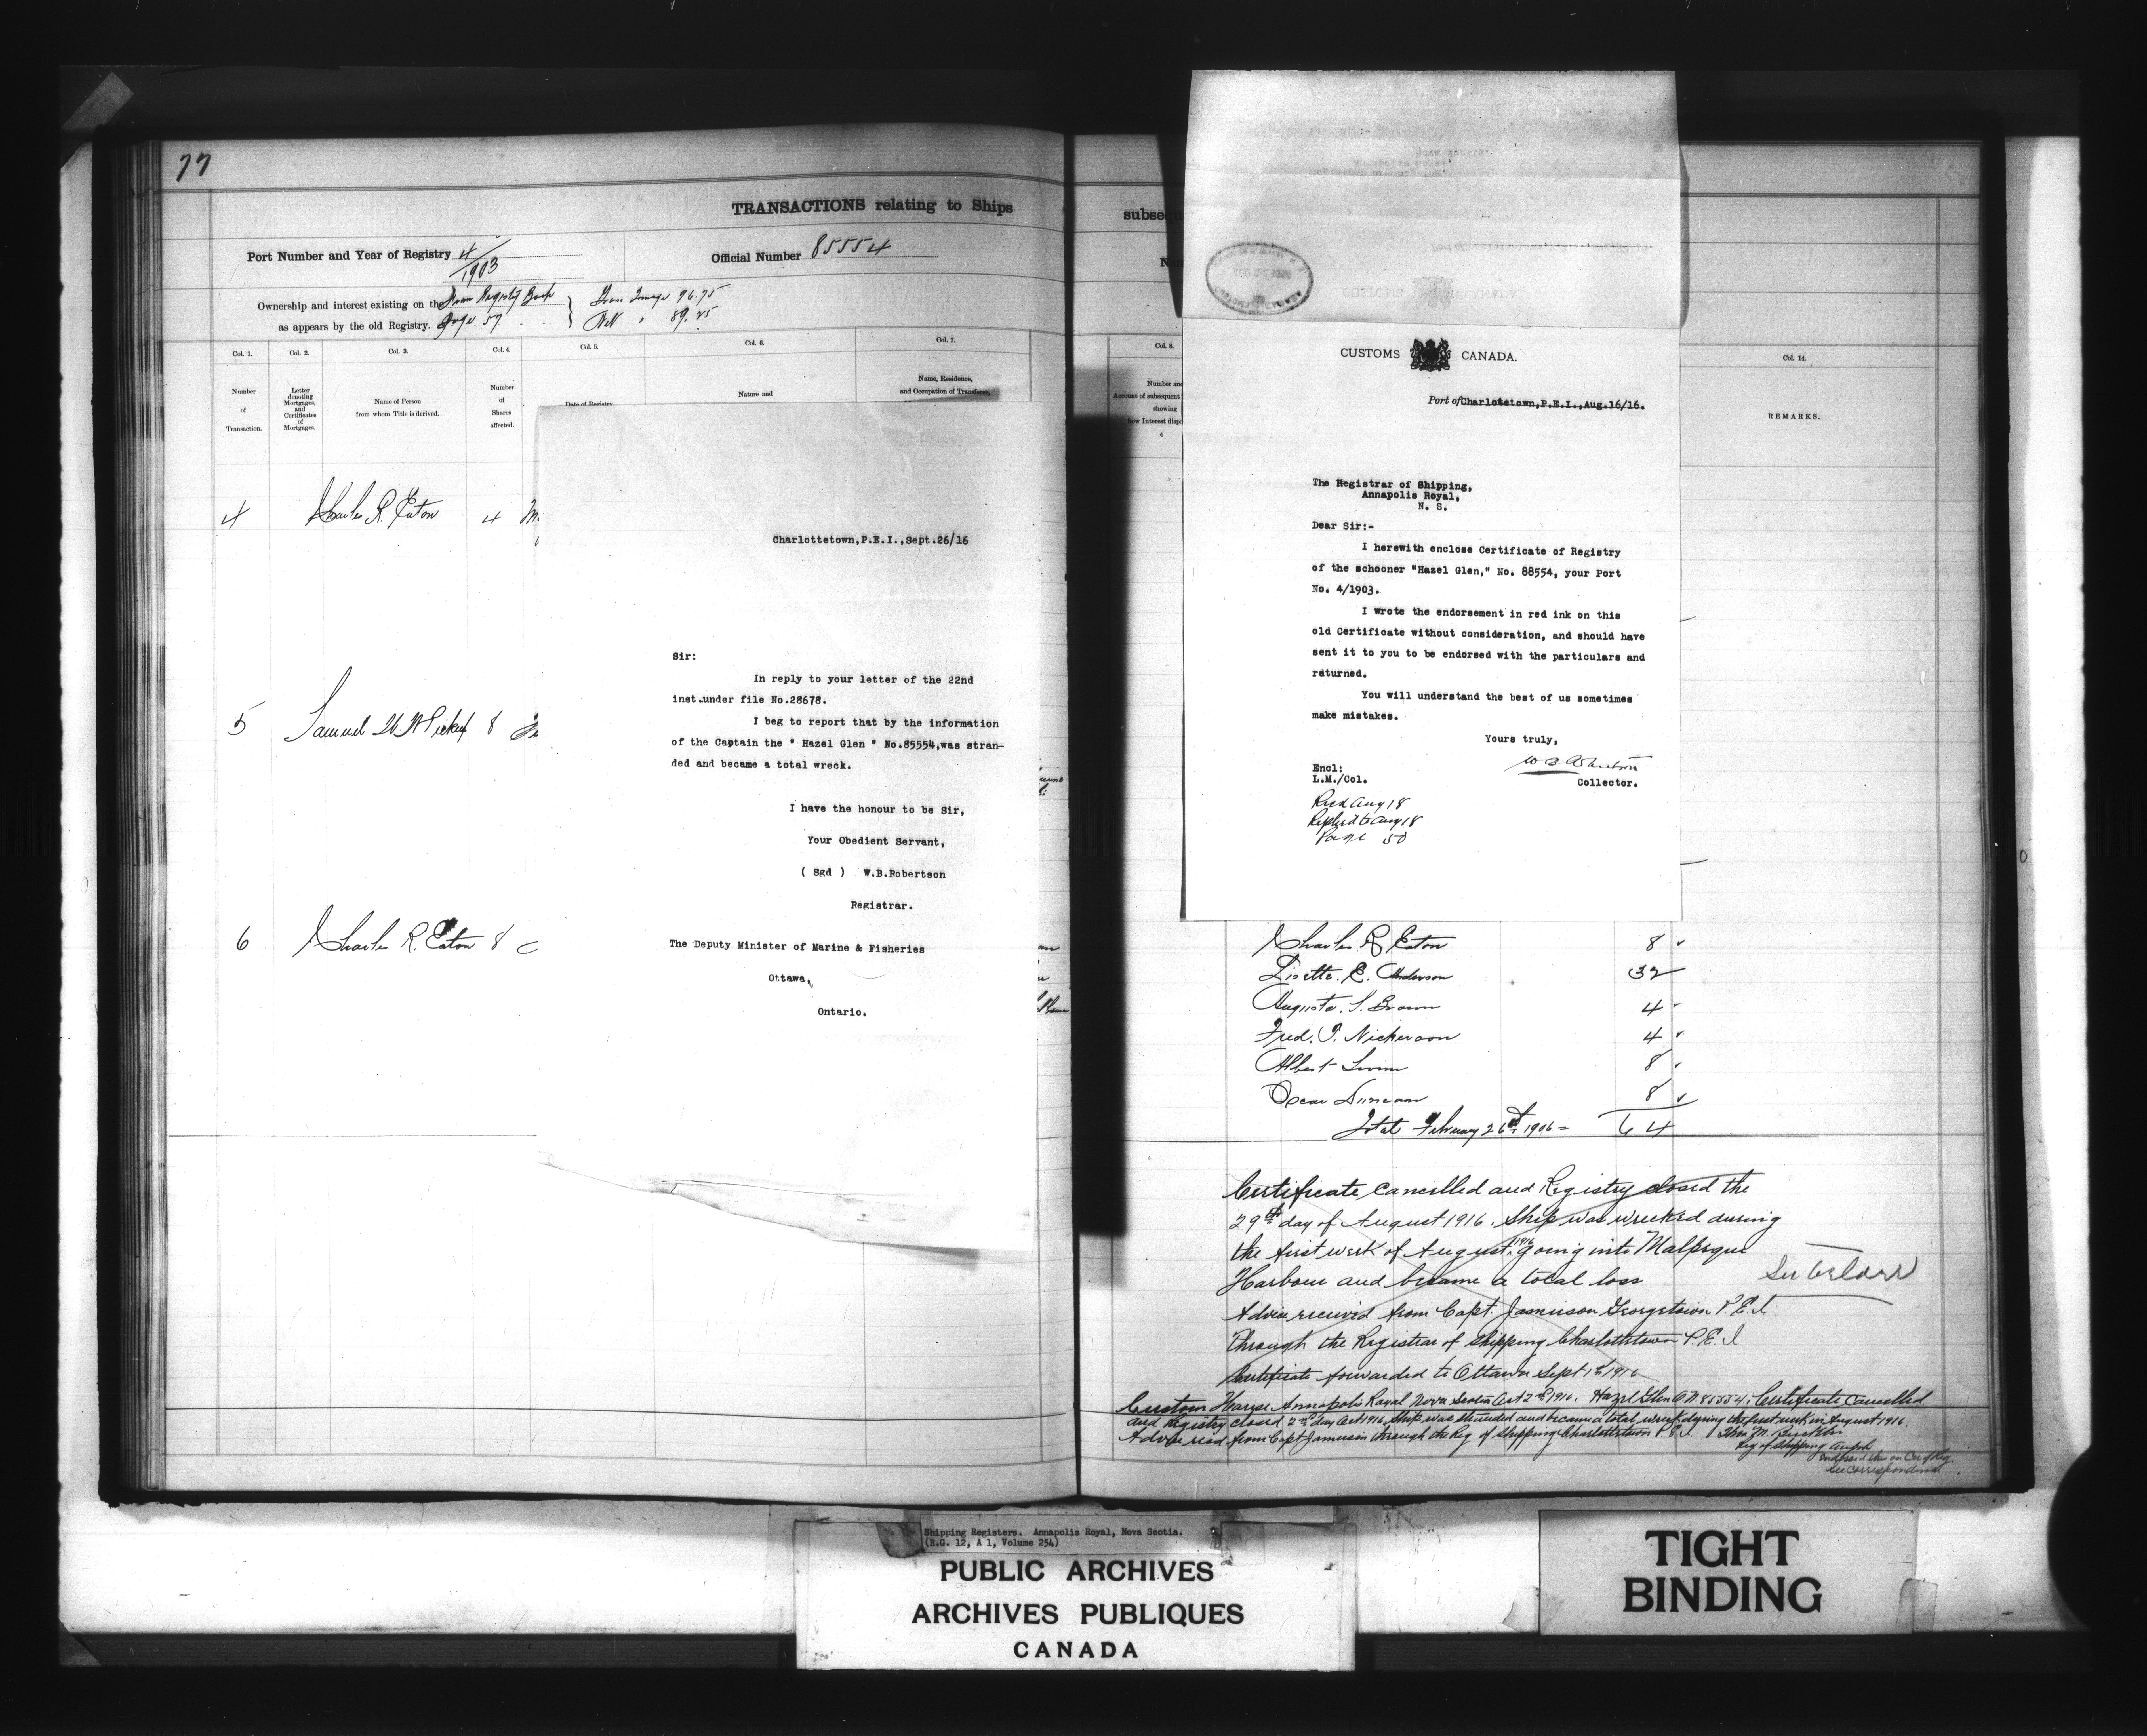 77
TRANSACTIONS relating to Ships
Port Number and Year of Registry 4/1903
Official Number 85554
Ownership and interest existing on the from Registry Book
as appears by the old Registry. Page 57
Gross Tonnage 96.75
Nett " 89.25
Col. 1. Col. 2. Col. 3. Col. 4. Col. 5. Col. 6. Col. 7.
Number of Transaction.
Letter denoting Mortgages, and Certificates of Mortgages.
Name of Person from whom Title is derived.
Number of Shares affected.
Date of Registry
Nature and
Name, Residence, and Occupation of Transferee,
4 Charles R. Eaton 4
5 Samuel W. W. Pickup 8
6 Charles R. Eaton 8
Charlottetown,P.E.I.,Sept.26/16
Sir:
In reply to your letter of the 22nd
inst.under file No.28678.
I beg to report that by the information
of the Captain the " Hazel Glen " No.85554,was stran-
ded and became a total wreck.
I have the honour to be Sir,
Your Obedient Servant,
( Sgd ) W.B.Robertson
Registrar.
The Deputy Minister of Marine & Fisheries
Ottawa,
Ontario.
subseq
Col. 8.
Number and
Account of subsequent
showing
how Interest disp
Col. 14.
REMARKS.
CUSTOMS CANADA.
Port of Charlottetown,P.E.I.,Aug.16/16.
The Registrar of Shipping,
Annapolis Royal,
N. S.
Dear Sir:-
I herewith enclose Certificate of Registry
of the schooner "Hazel Glen," No. 88554, your Port
No. 4/1903.
I wrote the endorsement in red ink on this
old Certificate without consideration, and should have
sent it to you to be endorsed with the particulars and
returned.
You will understand the best of us sometimes
make mistakes.
Yours truly,
Encl:
L.M./Col.
Collector.
Recd Aug 18
Replied to Aug 18
Page 50
Charles R. Eaton 8
Lisette. E. Anderson 32
Augusta. S. Brown 4
Fred. T. Nickerson 4
Albert 8
Oscar Duncan 8
Total February 26th 1906 = 64
Certificate cancelled and Registry closed the
29th day of August 1916. Ship was wrecked during
the first week of August, 1916 going into Malpeque
Harbour and became a total loss
See below
Advice received from Capt. Jamieson Georgetown P.E.I.
Through the Registrar of Shipping Charlottetown P.E.I
Certificate forwarded to Ottawa Sept 1st 1916
Custom House Annapolis Royal Nova Scotia Oct 2nd 1916. Hazel Glen O.N. 85554. Certificate Cancelled
and Registry closed 2nd day Oct 1916. Ship was stranded and became a total wreck during the first week in August 1916.
Advice recd from Capt Jamieson through the Reg of Shipping Charlottetown P.E.I.
Reg of Shipping
See correspondence
Shipping Registers. Annapolis Royal, Nova Scotia.
(R.G. 12, A 1, Volume 254)
PUBLIC ARCHIVES
ARCHIVES PUBLIQUES
CANADA
TIGHT
BINDING